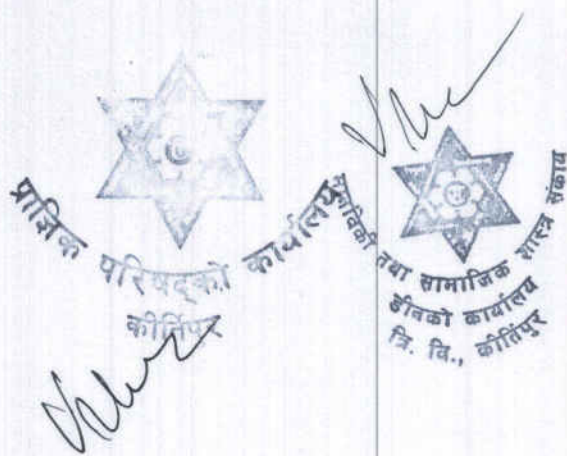 प्राज्ञिक परिषद्को कार्यालय
कीर्तिपुर
मानविकी तथा सामाजिक शास्त्र संकाय
डीनको कार्यालय
त्रि. वि., कीर्तिपुर